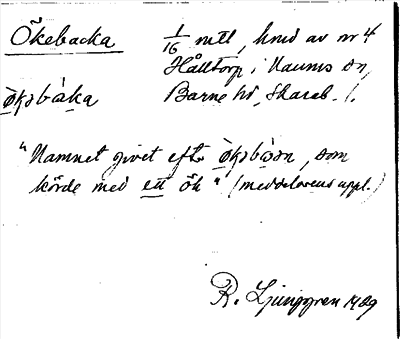 Ökebacka 1/16 mtl, hmd av nr 4
Hälltorp i Naums sn,
ö̀kəbàka Barne hd, Skarab. l.
"Namnet givet efter ökəbosən, som
körde med ett ök" (meddelarens uppl.)
R. Ljunggren 1929